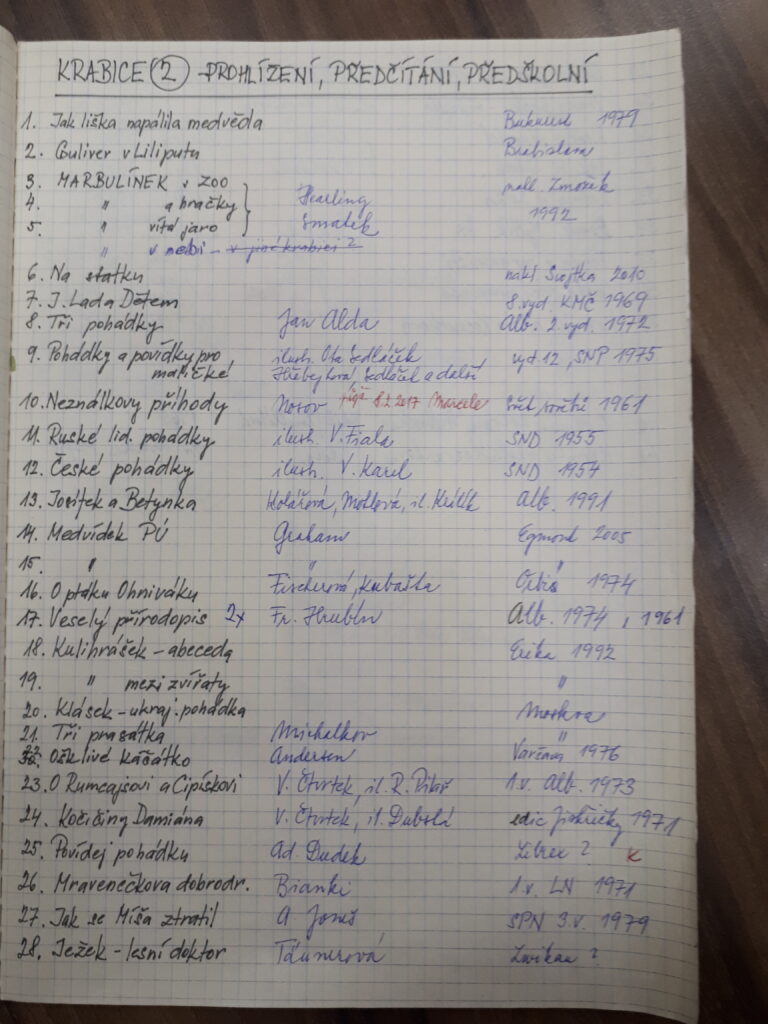 KRABICE (2) - PROHLÍZENÍ, PŘEDČÍTÁNÍ, PŘEDŠKOLNÍ
1. Jak liška napálila medvěda Bukurest 1979
2. Guliver v Liliputu Bratislava
3. MARBULÍNEK v ZOO nakl.
4. " a hračky
5. " vítá jaro Smatek 1992
" v nebi - v jiné krabici ?
6. Na statku nakl Svojtka 2010
7. J. Lada Dětem 8. vyd. KMČ 1969
8. Tři pohádky Jan Alda Alb. 2. vyd. 1972
9. Pohádky a povídky pro ilustr. Ota Sedláček vyd 12, SNP 1975
maličké Hřebejková Sedláček a další
10. Neználkovy příhody Nosov 8.2.2017 Marcele Svět sovětů 1961
11. Ruské lid. pohádky ilustr. V. Fiala SND 1955
12. České pohádky ilustr. V. Karel SND 1954
13. Josífek a Betynka Kolářová, Motlová, il. Králík Alb. 1991
14. Medvídek PÚ Graham Egmont 2005
15. " " "
16. O ptáku Ohniváku Fischerová, Kubašta Orbis 1974
17. Veselý přírodopis 2x Fr. Hrubín Alb. 1974, 1961
18. Kulihrášek - abeceda Erika 1992
19. " mezi zvířaty "
20. Klásek - ukraj. pohádka Moskva
21. Tři prasátka Michalkov "
22. Ošklivé káčátko Andersen Varšava 1976
23. O Rumcajsovi a Cipískovi V. Čtvrtek, il. R. Pilař 1.v. Alb. 1973
24. Kočičiny Damiána V. Čtvrtek, il. Dubská edic Jiskřičky 1971
25. Povídej pohádku Ad. Dudek Librex ? x
26. Mravenečkova dobrodr. Bianki 1.v. LN 1971
27. Jak se Míša ztratil A Joneš SPN 3.v. 1979
28. Ježek - lesní doktor Täunerová Zwikau ?